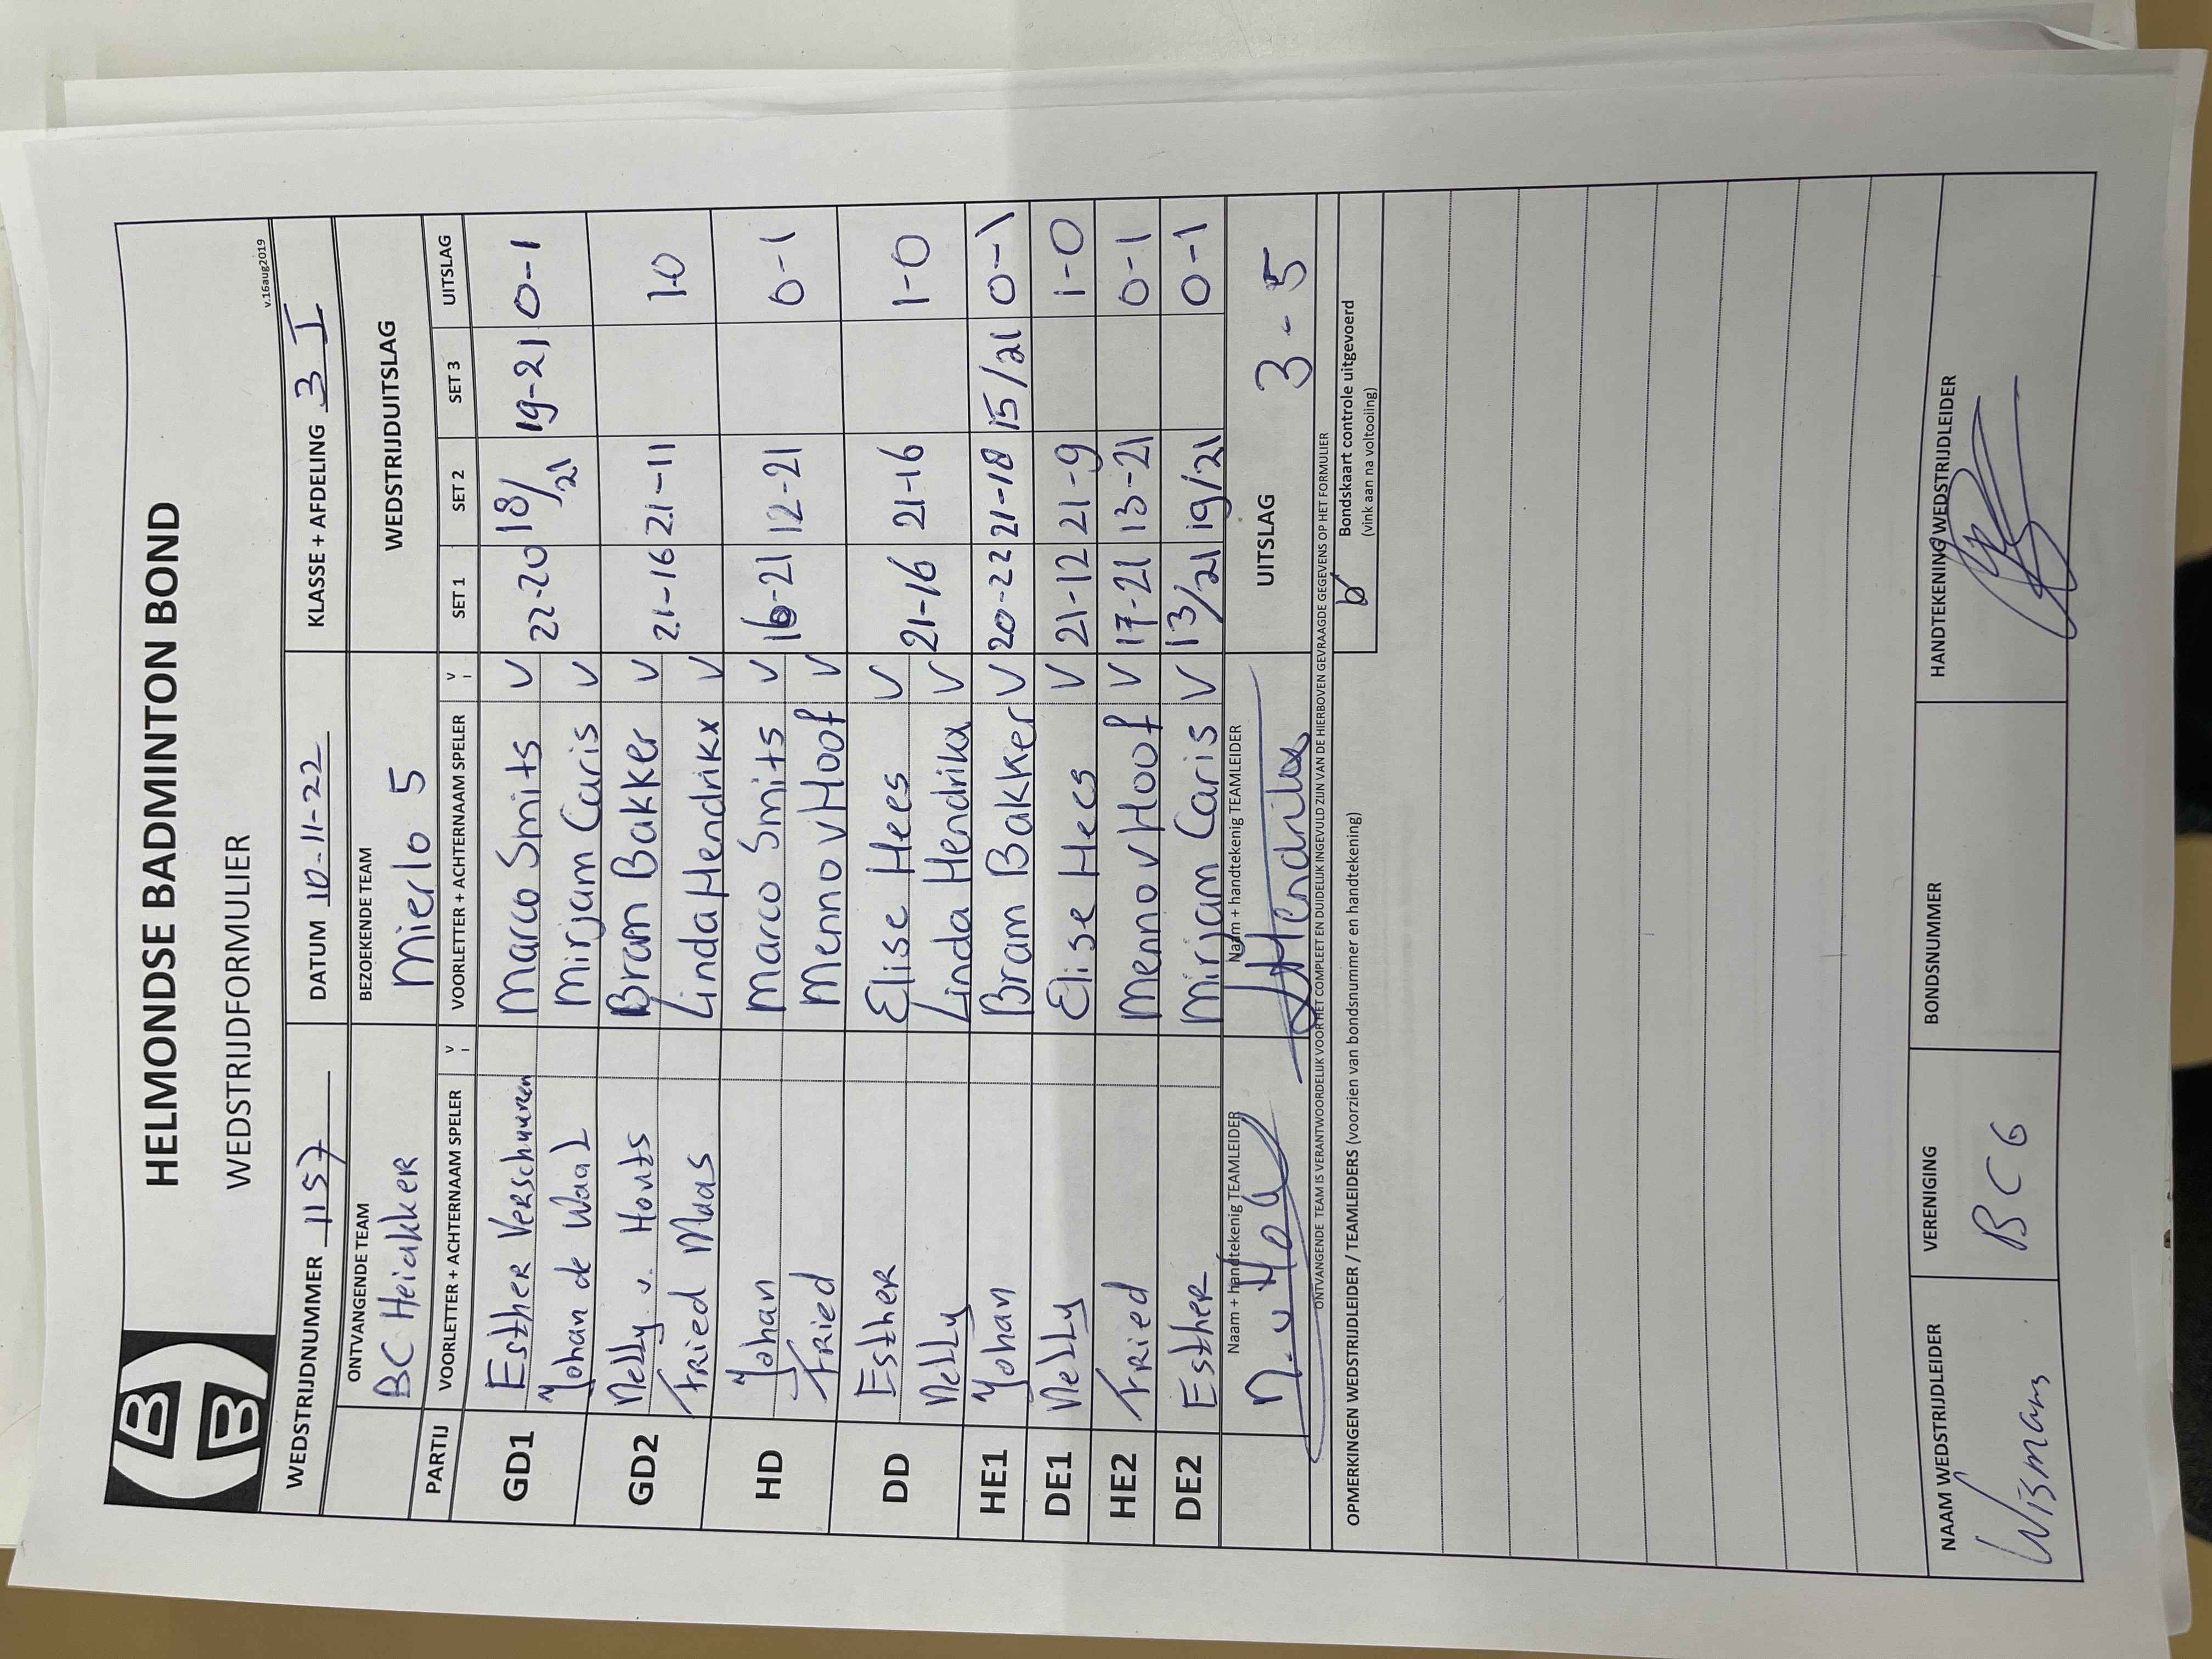 HBB
HELMONDSE BADMINTON BOND
WEDSTRIJDFORMULIER
v.16aug2019
WEDSTRIJDNUMMER 1157 DATUM 10-11-22 KLASSE + AFDELING 3 I
ONTVANGENDE TEAM BEZOEKENDE TEAM WEDSTRIJDUITSLAG
BC Heiakker Mierlo 5
PARTIJ VOORLETTER + ACHTERNAAM SPELER V VOORLETTER + ACHTERNAAM SPELER V SET 1 SET 2 SET 3 UITSLAG
GD1 Esther Verschuuren Marco Smits V 22-20 18/21 19-21 0-1
Johan de Waal Mirjam Caris V
GD2 Nelly v. Houts Bram Bakker V 21-16 21-11 1-0
Fried Maas Linda Hendrikx V
HD Johan Marco Smits V 16-21 12-21 0-1
Fried Menno v Hoof V
DD Esther Elise Hees V 21-16 21-16 1-0
Nelly Linda Hendrikx V
HE1 Johan Bram Bakker V 20-22 21-18 15/21 0-1
DE1 Nelly Elise Hees V 21-12 21-9 1-0
HE2 Fried Menno v Hoof V 17-21 13-21 0-1
DE2 Esther Mirjam Caris V 13/21 19/21 0-1
Naam + handtekenig TEAMLEIDER Naam + handtekenig TEAMLEIDER UITSLAG 3-5
Hendrikx
ONTVANGENDE TEAM IS VERANTWOORDELIJK VOOR HET COMPLEET EN DUIDELIJK INGEVULD ZIJN VAN DE HIERBOVEN GEVRAAGDE GEGEVENS OP HET FORMULIER
OPMERKINGEN WEDSTRIJDLEIDER / TEAMLEIDERS (voorzien van bondsnummer en handtekening) Bondskaart controle uitgevoerd
(vink aan na voltooiing)
NAAM WEDSTRIJDLEIDER VERENIGING BONDSNUMMER HANDTEKENING WEDSTRIJDLEIDER
Wismans BCG